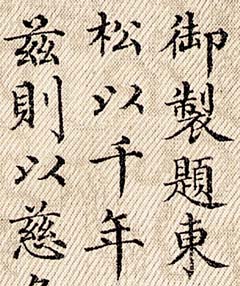 御製題東
松以千年
茲則以慈